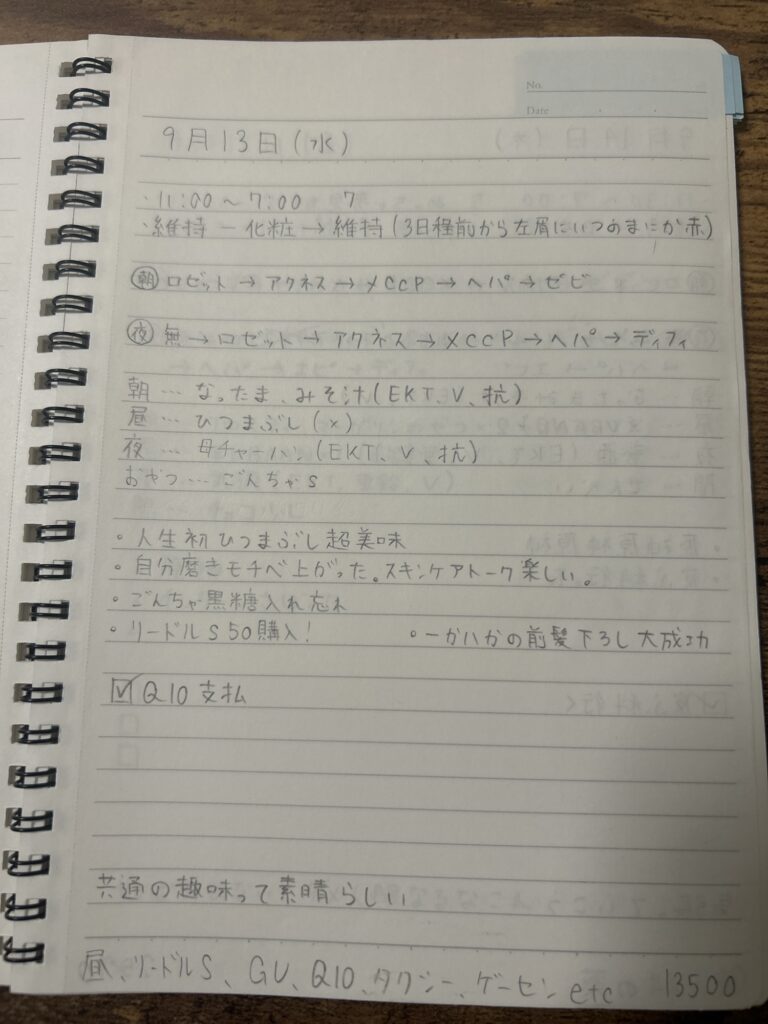 No.
Date
9月13日(水)
・11:00～7:00 7
・維持－化粧→維持(3日程前から左肩にいつのまにか赤)
朝 ロゼット→アクネス→メCCP→ヘパ→ゼビ
夜 無→ロゼット→アクネス→メCCP→ヘパ→ディフィ
朝…なったま、みそ汁(EKT、V、抗)
昼…ひつまぶし(×)
夜…母チャーハン(EKT、V、抗)
おやつ…ごんちゃS
・人生初ひつまぶし超美味
・自分磨きモチベ上がった。スキンケアトーク楽しい。
・ごんちゃ黒糖入れ忘れ
・リードルS50購入!
・一かバかの前髪下ろし大成功
☑Q10支払
☐
☐
共通の趣味って素晴らしい
昼、リードルS、GU、Q10、タクシー、ゲーセンetc 13500